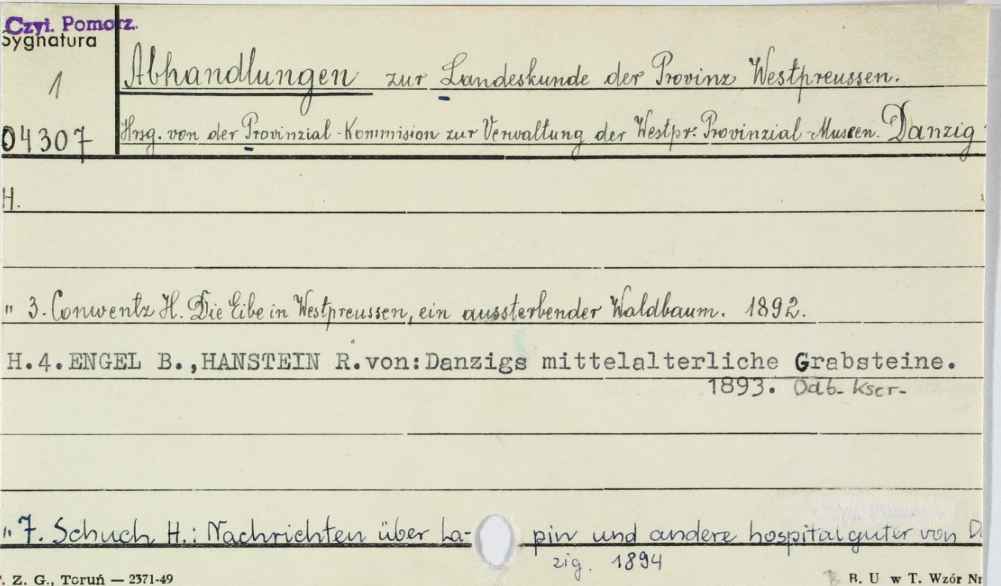 Czyt. Pomorz.
Sygnatura
1
04307
Abhandlungen zur Landeskunde der Provinz Westpreussen.
Hrsg. von der Provinzial-Kommision zur Verwaltung der Westpr. Provinzial-Museen. Danzig
H.
" 3. Conwentz H. Die Eibe in Westpreussen, ein aussterbender Waldbaum. 1892.
H.4. ENGEL B.,HANSTEIN R.von:Danzigs mittelalterliche Grabsteine.
1893. Odb. kser.
" 7. Schuch H.: Nachrichten über La- pin und andere hospitalguter von D
zig. 1894
. Z. G., Toruń — 2371-49
B. U w T. Wzór Nr